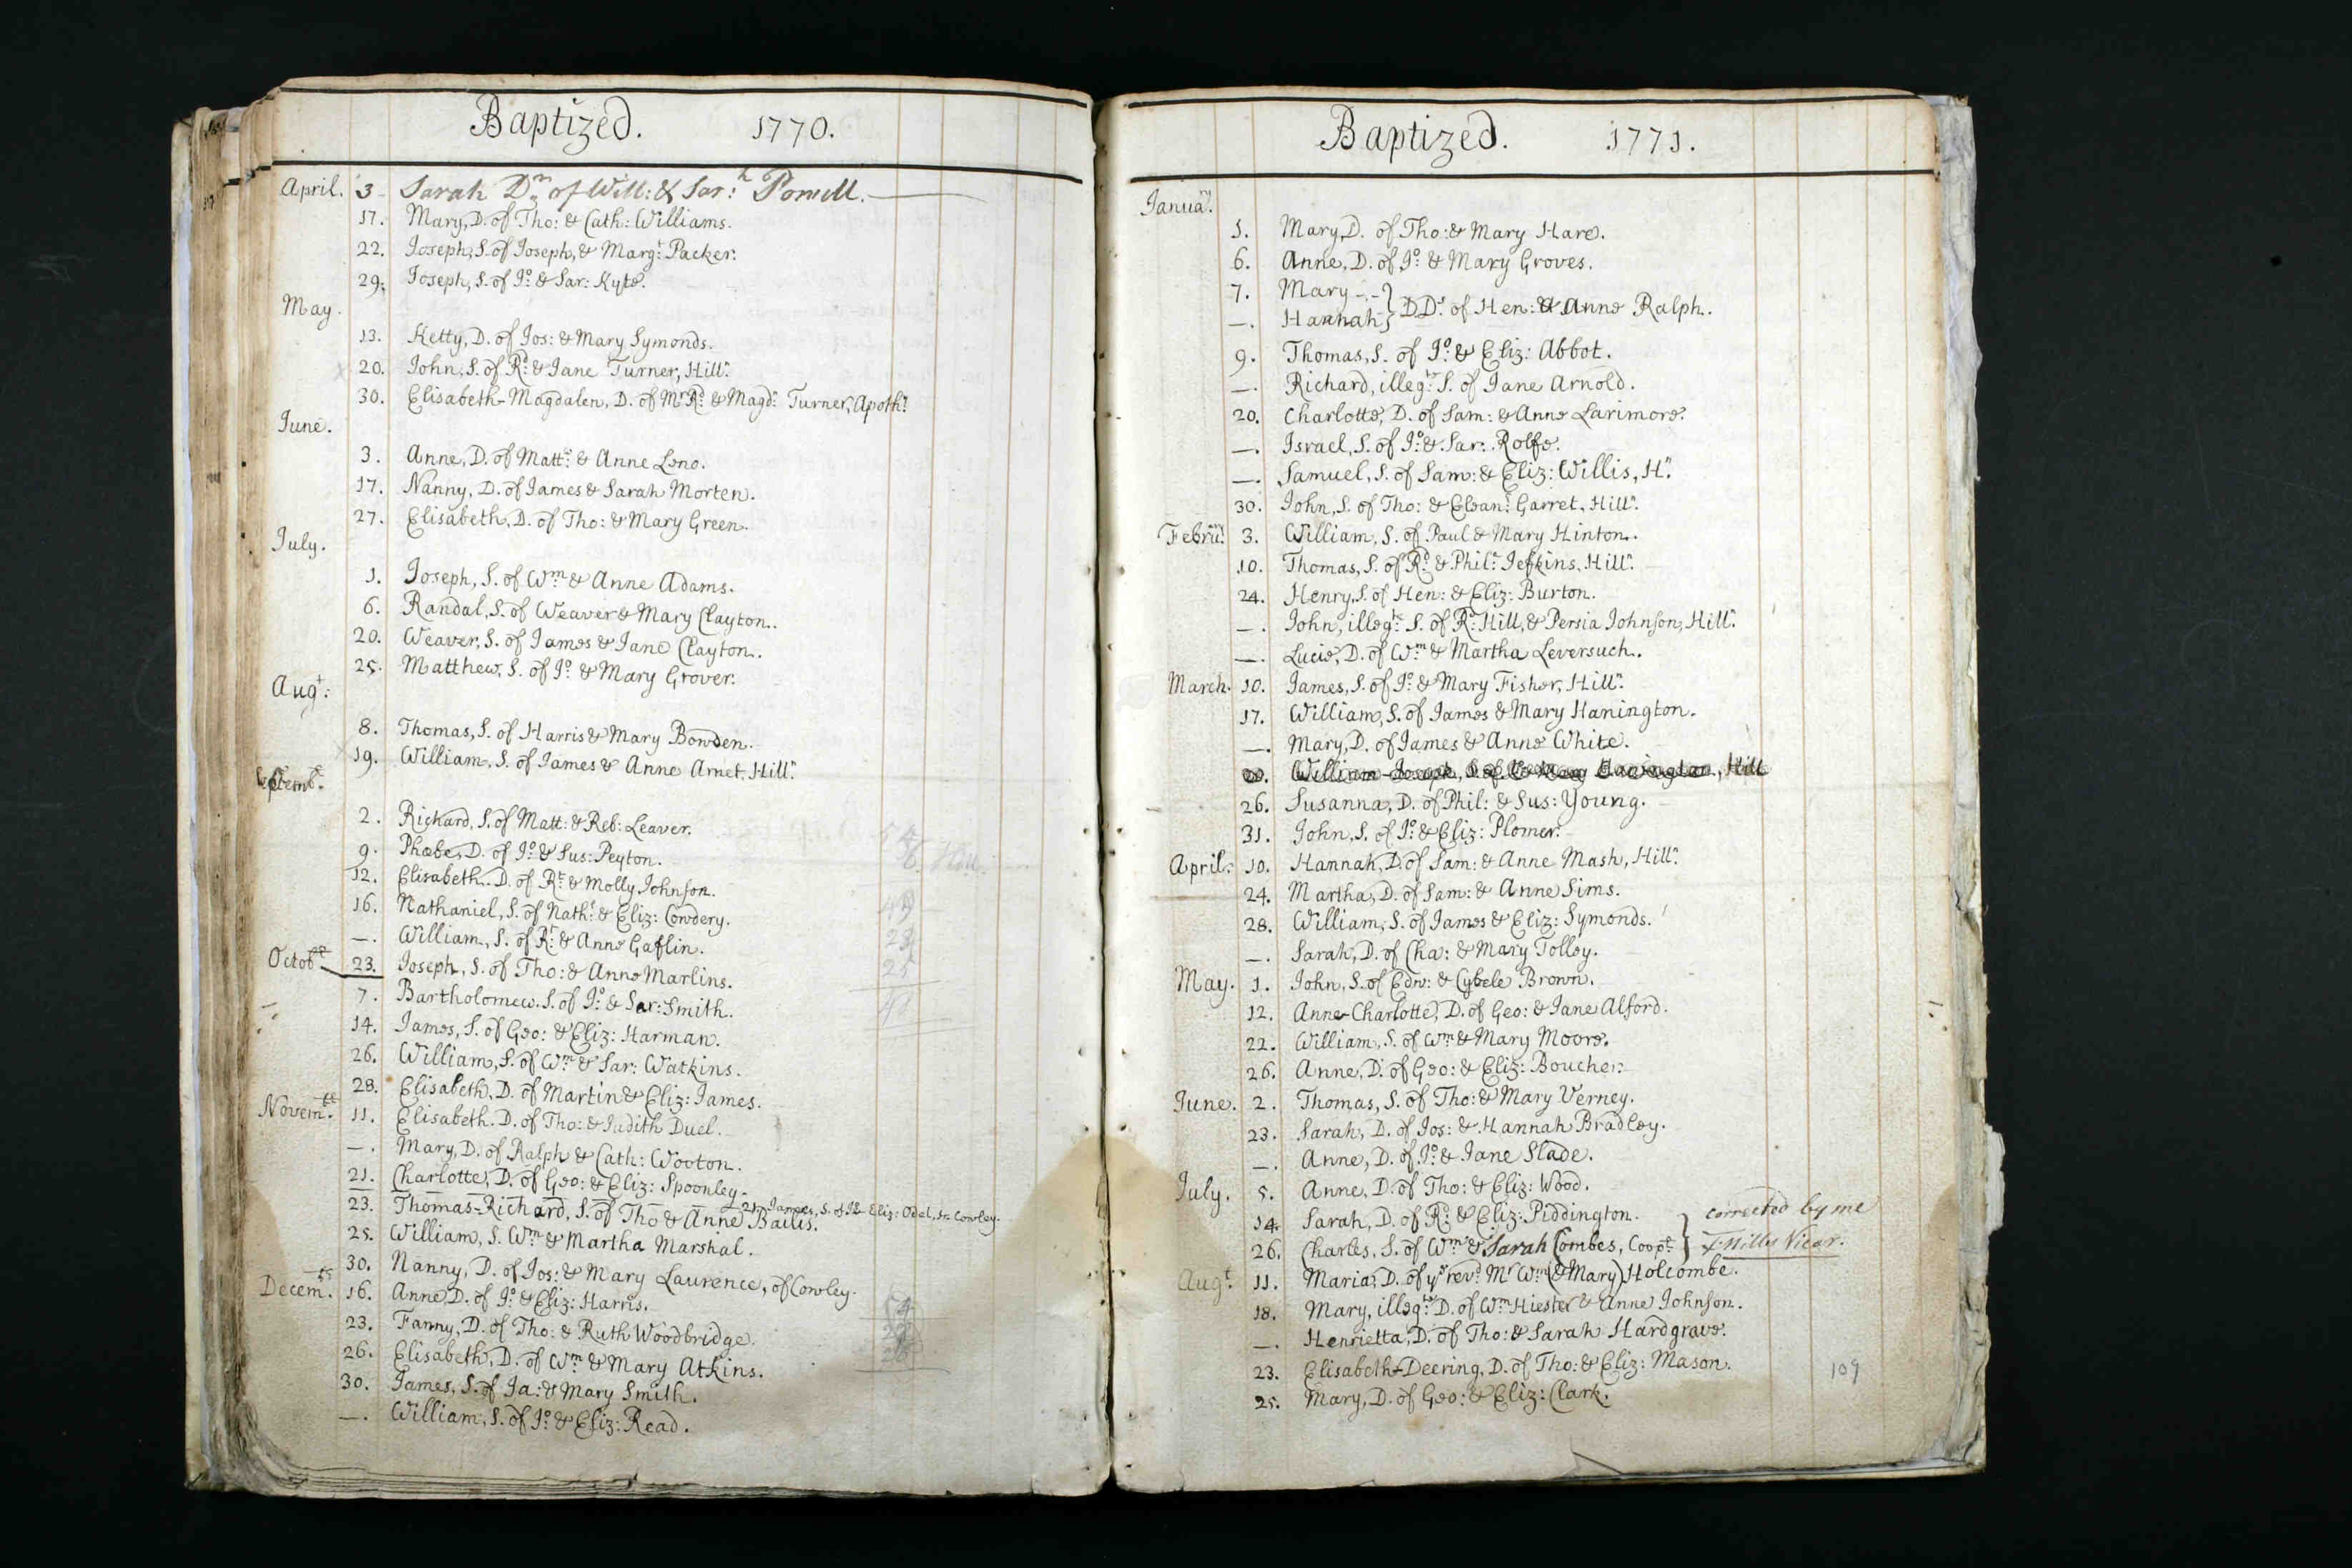 Baptized. 1770.
April. 3 Sarah Dr. of Will: & Sar:h Powell.
17. Mary, D. of Tho: & Cath: Williams.
22. Joseph, S. of Joseph, & Marg:t Packer.
29. Joseph, S. of Jo: & Sar: Kyte.
May.
13. Ketty, D. of Jos: & Mary Symonds.
20. John, S. of Rd: & Jane Turner, Hilln.
30. Elisabeth-Magdalen, D. of Mr Rd: & Magdn: Turner, Apoth:
June.
3. Anne, D. of Matt: & Anne Leno.
17. Nanny, D. of James & Sarah Morten.
27. Elisabeth, D. of Tho: & Mary Green.
July.
1. Joseph, S. of Wm: & Anne Adams.
6. Randal, S. of Weaver & Mary Clayton.
20. Weaver, S. of James & Jane Clayton.
25. Matthew, S. of Jo: & Mary Grover.
Augt:
8. Thomas, S. of Harris & Mary Bowden.
19. William, S. of James & Anne Arnet, Hilln.
Septembr.
2. Richard, S. of Matt: & Reb: Leaver.
9. Phœbe, D. of Jo: & Sus: Peyton.
12. Elisabeth. D. of Rt: & Molly Johnson.
16. Nathaniel, S. of Nath:l & Eliz: Cowdery.
—. William, S. of Rt: & Anne Gaflin.
23. Joseph, S. of Tho: & Anne Marlins.
Octobr
7. Bartholomew. S. of Jo: & Sar: Smith.
14. James, S. of Geo: & Eliz: Harman.
26. William, S. of Wm: & Sar: Watkins.
28. Elisabeth, D. of Martin & Eliz: James.
Novembr. 11. Elisabeth. D. of Tho: & Judith Duel.
—. Mary, D. of Ralph & Cath: Wooton.
21. Charlotte, D. of Geo: & Eliz: Spoonley.
21. James, S. of Eliz: Odel, Cowley.
23. Thomas-Richard, S. of Tho & Anne Bailis.
25. William, S. Wm: & Martha Marshal.
30. Nanny, D. of Jos: & Mary Laurence, of Cowley.
Decembr. 16. Anne, D. of Jo: & Eliz: Harris.
23. Fanny, D. of Tho: & Ruth Woodbridge.
26. Elisabeth, D. of Wm: & Mary Atkins.
30. James, S. of Ja: & Mary Smith.
—. William, S. of Jo: & Eliz: Read.
Baptized. 1771.
January.
1. Mary, D. of Tho: & Mary Hare.
6. Anne, D. of Jo: & Mary Groves.
7. Mary
—. Hannah } D.Ds. of Hen: & Anne Ralph.
9. Thomas, S. of Jo: & Eliz: Abbot.
—. Richard, illegte: S. of Jane Arnold.
20. Charlotte, D. of Sam: & Anne Larimore.
—. Israel, S. of Jo: & Sar: Rolfe.
—. Samuel, S. of Sam: & Eliz: Willis, Hn.
30. John, S. of Tho: & Elean:r Garret, Hilln.
Februry. 3. William, S. of Paul & Mary Hinton.
10. Thomas, S. of Rd: & Phil:a Jefkins, Hilln.
24. Henry, S. of Hen: & Eliz: Burton.
—. John, illegte: S. of Rd: Hill, & Persia Johnson, Hilln.
—. Lucie, D. of Wm: & Martha Leversuch.
March. 10. James, S. of Jo: & Mary Fisher, Hilln.
17. William, S. of James & Mary Hanington.
—. Mary, D. of James & Anne White.
26. Susanna, D. of Phil: & Sus: Young.
31. John, S. of Jo: & Eliz: Plomer.
April. 10. Hannah, D. of Sam: & Anne Mash, Hilln.
24. Martha, D. of Sam: & Anne Sims.
28. William, S. of James & Eliz: Symonds.
—. Sarah, D. of Cha: & Mary Tolley.
May. 1. John, S. of Edw: & Cybele Brown.
12. Anne-Charlotte, D. of Geo: & Jane Alford.
22. William, S. of Wm & Mary Moore.
26. Anne, D. of Geo: & Eliz: Boucher.
June. 2. Thomas, S. of Tho: & Mary Verney.
23. Sarah, D. of Jos: & Hannah Bradley.
—. Anne, D. of Jo: & Jane Slade.
July. 5. Anne, D. of Tho: & Eliz: Wood.
14. Sarah, D. of Rd: & Eliz: Piddington.
26. Charles, S. of Wm & Sarah Combes, Coopr.
} corrected by me
T. Mills Vicar.
Augt. 11. Maria, D. of ye revd Mr Wm (& Mary) Holcombe.
18. Mary, illegte: D. of Wm Hiester & Anne Johnson.
—. Henrietta, D. of Tho: & Sarah Hardgrave.
23. Elisabeth-Deering, D. of Tho: & Eliz: Mason.
25. Mary, D. of Geo: & Eliz: Clark.
109